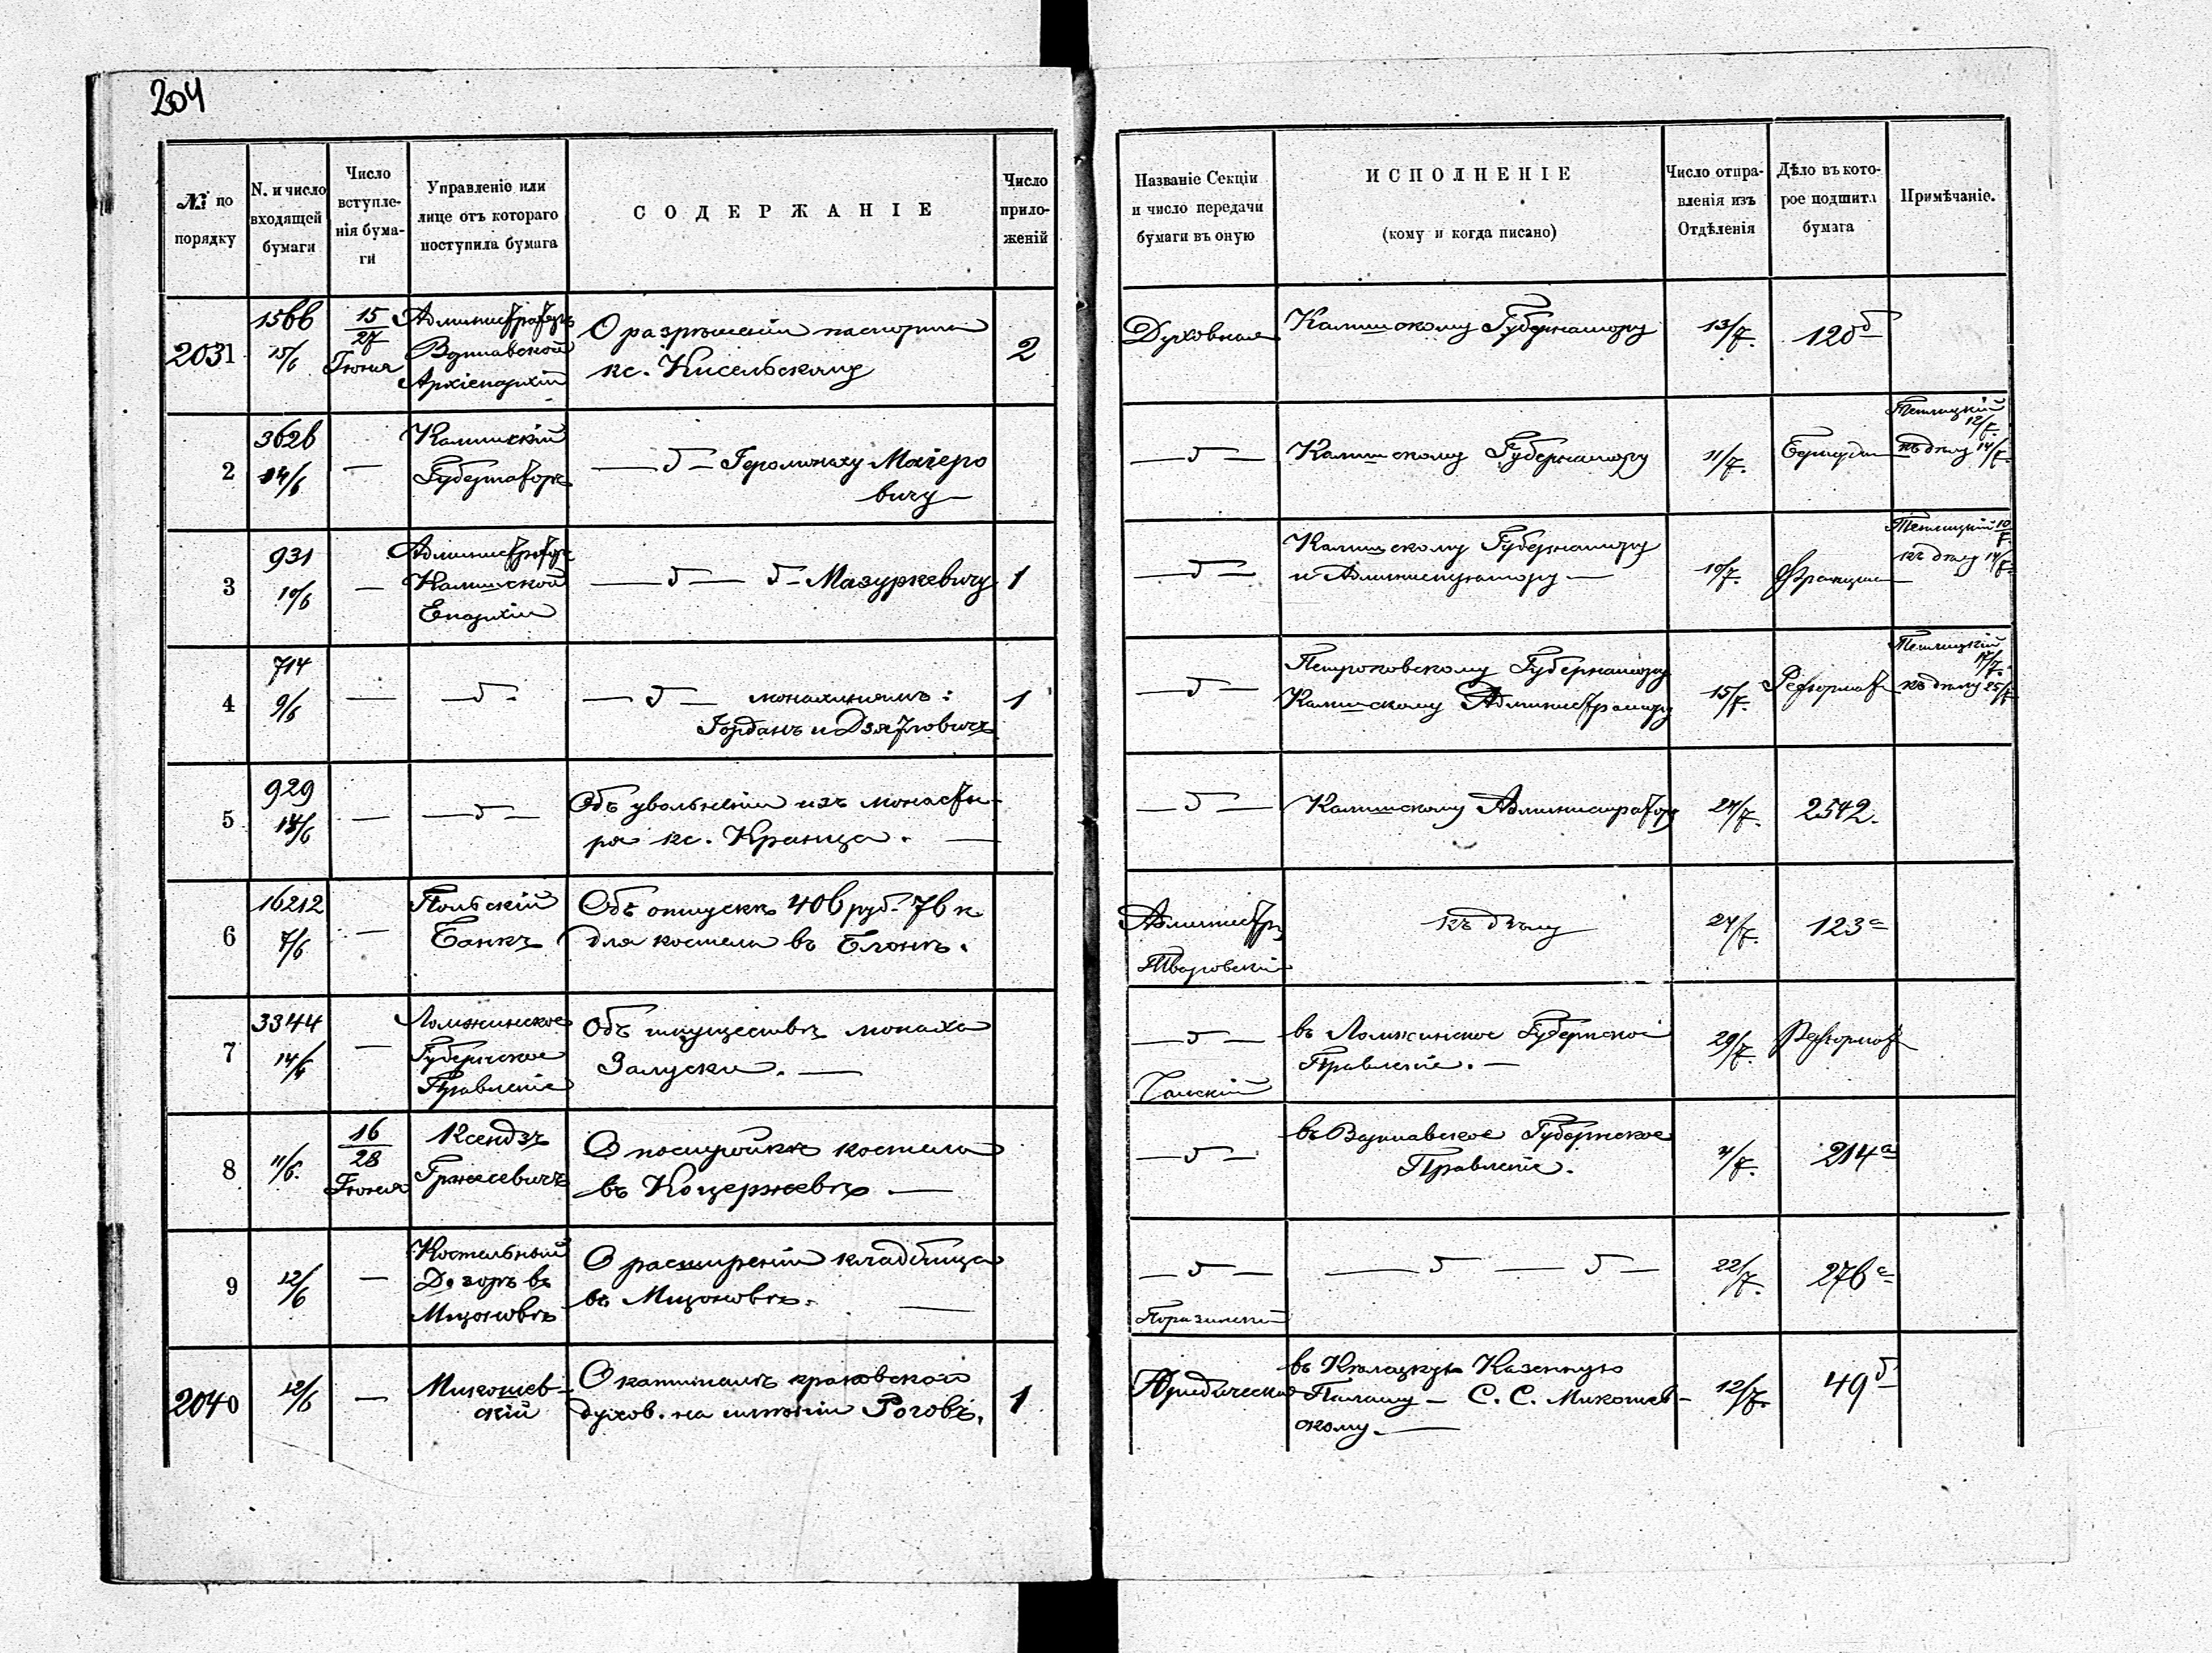 204
№ по порядку
N. и число входящей бумаги
Число вступле-нія бума-ги
Управленіе или лице отъ котораго поступила бумага
СОДЕРЖАНІЕ
Число прило-женій
Названіе Секціи и число передачи бумаги въ оную
ИСПОЛНЕНІЕ
(кому и когда писано)
Число отпра-вленія изъ Отдѣленія
Дѣло въ кото-рое подшита бумага
Примѣчаніе.
2031
1566
15/6
15
27
Іюня
Администраторъ
Варшавской
Архіепархіи
О разрѣшеніи паспорта
кс. Кисельскому
2
Духовная
Калишскому Губернатору
13/7.
120б
2
3626
14/6
—
Калишскій
Губернаторъ
—б— Іеромонаху Магеро
вичу—
—б—
Калишскому Губернатору
11/7.
12/7.
къ дѣлу 14/7.
3
931
10/6
—
Администраторъ
Калишской
Епархіи
—б— б— Мазуркевичу
1
—б—
Калишскому Губернатору
и Администратору—
10/7.
Францин
10/7
къ дѣлу 14/7.
4
714
9/6
—
—б.
—б— монахинямъ:
Іорданъ и Дзятловичъ
1
—б—
Петроковскому Губернатору
Калишскому Администратору
15/7.
Реформат
17/7.
къ дѣлу 25/7
5
929
14/6
—
—б—
Объ увольненіи изъ монасты-
ря кс. Кранца. —
—б—
Калишскому Администратору
24/7.
2542.
6
16212
7/6
—
Польскій
Банкъ
Объ отпускѣ 406 руб. 76 к
для костела въ Блонѣ.
Администр
къ дѣлу
24/7.
123а
7
3344
14/6
—
Ломжинское
Губернское
Правленіе
Объ имуществѣ монаха
Залуски. —
—б—
въ Ломжинское Губернское
Правленіе. —
29/7.
Реформат
8
11/6.
16
28
Іюня
Ксендзъ
Гржесевичъ
О постройкѣ костела
въ Коцержевѣ —
—б—
въ Варшавское Губернское
Правленіе.
4/7.
214а
9
12/6
—
Костельный
Дозоръ въ
Мщоновѣ
О расширеніи кладбища
въ Мщоновѣ. —
—б—
—б—б—
22/7.
276а
2040
12/6
—
Микошев-
скій
О капиталѣ краковскаго
духов. на имѣніи Рогов.
1
Юридическая
въ Кѣлецкую Казенную
Палату — С. С. Микошев-
скому. —
12/7.
49б